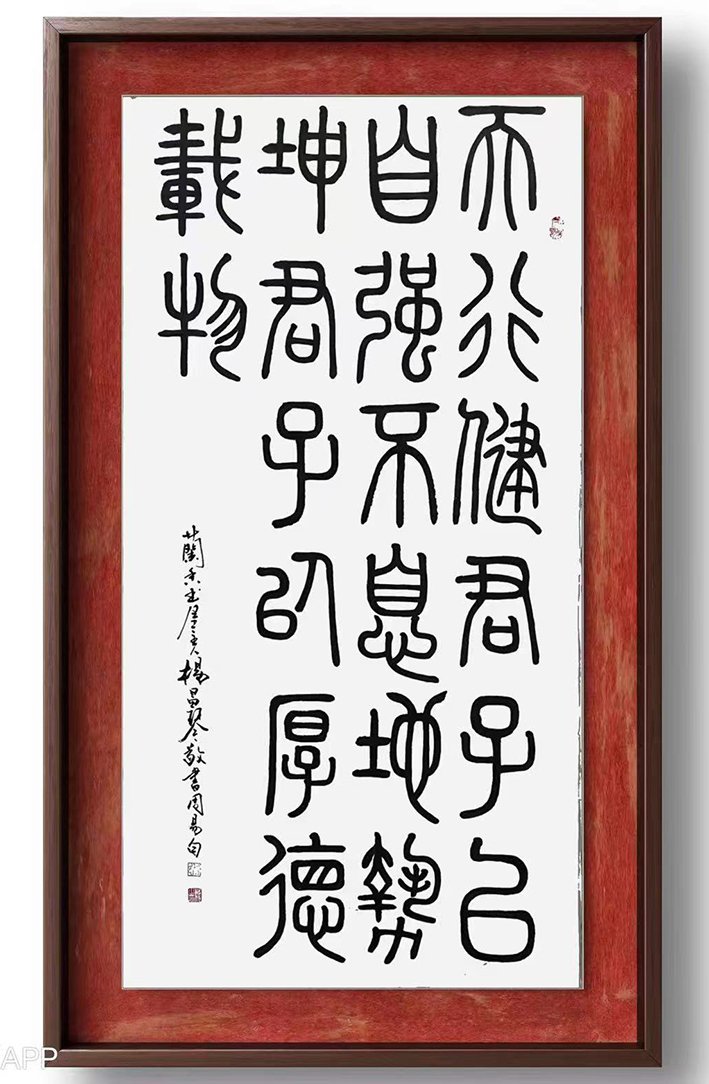 天行健君子以
自强不息地勢
坤君子以厚德
載物
蘭香书屋主人楊昌琴敬書周易句
APP